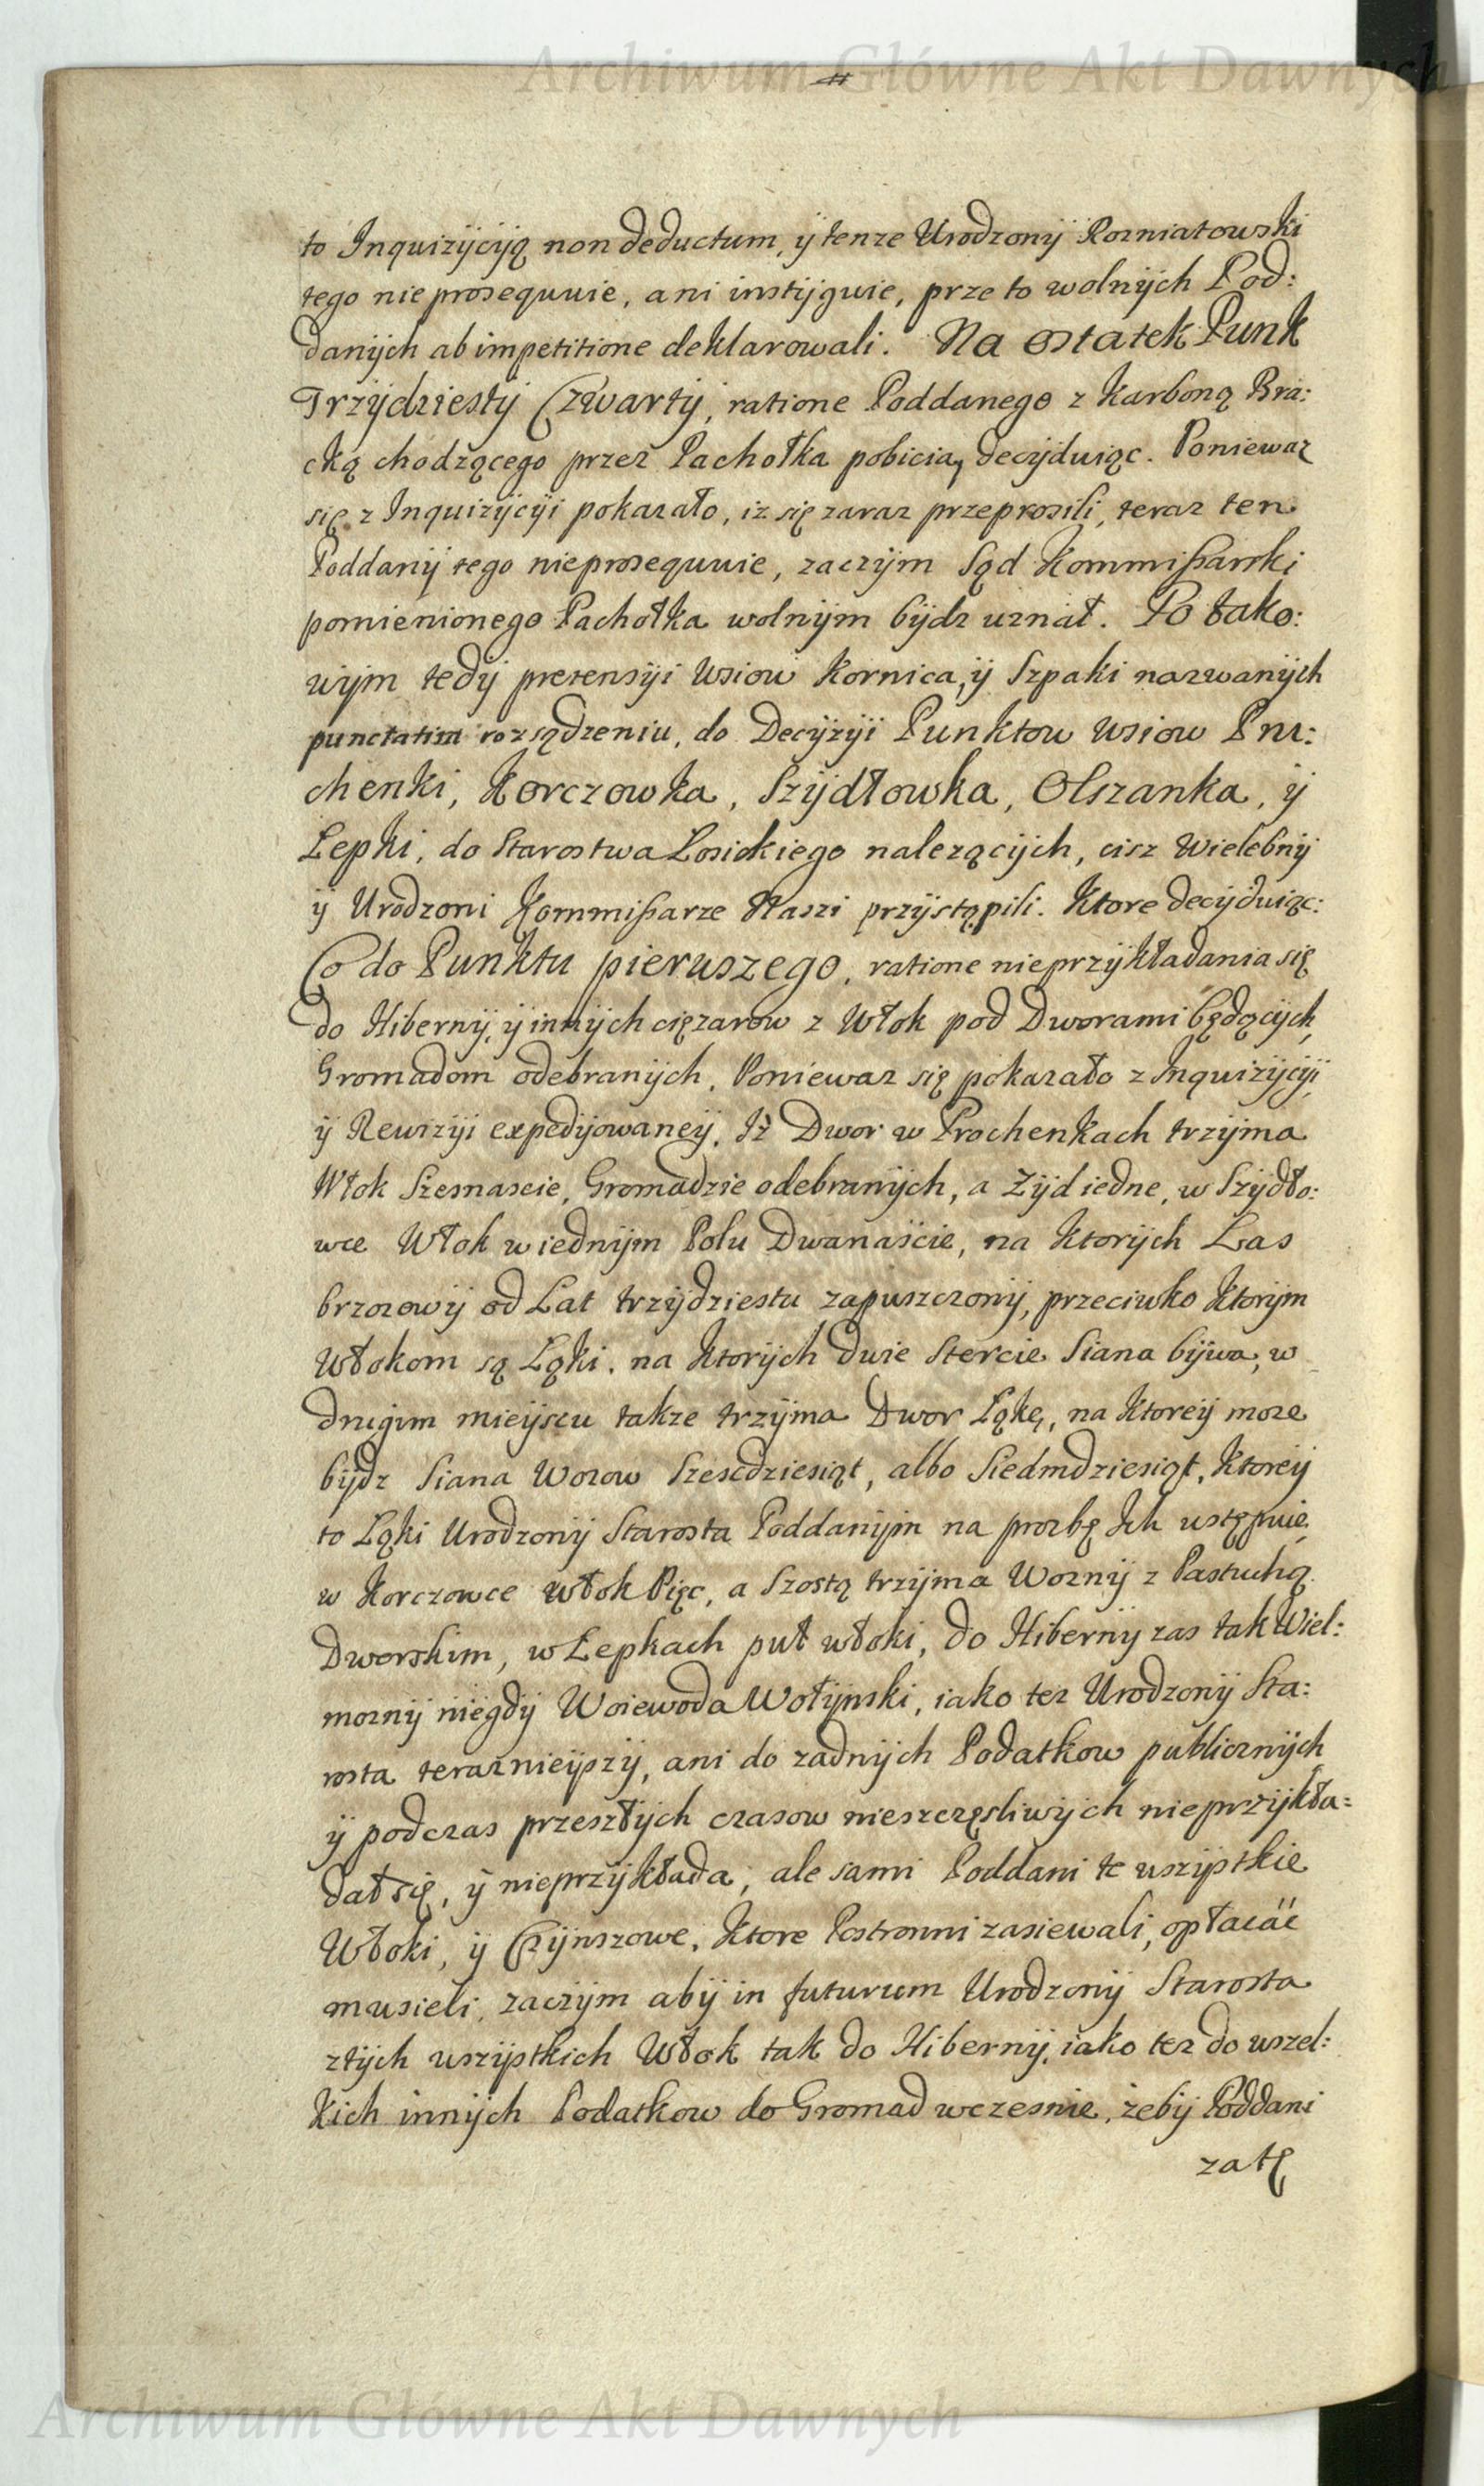 Archiwum Główne Akt Dawnych
to Inquizÿcÿą non deductum, ÿ tenze Urodzonÿ Rozniatowski
tego nie prosequuie, ani instÿguie, prze to wolnÿch Pod:
danÿch ab impetitione deklarowali. Na Ostatek Punk
Trzÿdziestÿ Czwartÿ, ratione Poddanego z Karboną Bra:
cką chodzącego przez Pachołka pobicia, decÿduiąc. Poniewaz
się z Inquizÿcÿi pokazało, iz się zaraz przeprosili, teraz ten
Poddanÿ tego nieprosequuie, zaczÿm Sąd Kommißarski
pomienionego Pachołka wolnÿm bÿdz uznał. Po tako:
wÿm tedÿ pretensÿi Wsiow Kornica, ÿ Szpaki nazwanÿch
punctatim rozsądzeniu, do Decÿzÿi Punktow Wsiow Pru:
chenki, Korczowka, Szÿdłowka, Olszanka, ÿ
Łepki, do Starostwa Łosickiego nalezącÿch, cisz Wielebnÿ
ÿ Urodzoni Kommißarze Naszi przÿstąpili. Ktore decÿduiąc:
Co do Punktu pierwszego, ratione nieprzÿkładania się
do Hibernÿ, ÿ innÿch cięzarow z Włok pod Dworami będącÿch,
Gromadom odebranÿch, Poniewaz się pokazało z Inquizÿcÿi,
ÿ Rewizÿi expedÿowaneÿ, Iż Dwor w Prochenkach trzÿma
Włok Szesnascie, Gromadzie odebranÿch, a Zÿd iedne, w Szÿdło:
wce Włok w iednÿm Polu Dwanaście, na ktorÿch Las
brzozowÿ od Lat trzÿdziestu zapuszczonÿ, przeciwko ktorÿm
Włokom są Łąki, na ktorÿch dwie Stercie Siana bÿwa, w
drugim mieÿscu takze trzÿma Dwor Łąkę, na ktoreÿ moze
bÿdz Siana Wozow Szescdziesiąt, albo Siedmdziesiąt, ktoreÿ
to Łąki Urodzonÿ Starosta Poddanÿm na prozbę Ich ustępuie,
w Korczowce włok Pięc, a Szostą trzÿma Woznÿ z Pastuchą
Dworskim, w Łepkach puł włoki, do Hibernÿ zas tak Wiel:
moznÿ niegdÿ Woiewoda Wołÿnski, iako tez Urodzonÿ Sta:
rosta teraznieÿszÿ, ani do zadnÿch Podatkow publicznÿch
ÿ podczas przeszłÿch czasow nieszczęsliwÿch nieprzÿkła:
dał się, ÿ nieprzÿkłada, ale sami Poddani te wszÿstkie
Włoki, ÿ Czÿnszowe, ktore Postronni zasiewali, opłacáć
musieli, zaczÿm abÿ in futurum Urodzonÿ Starosta
ztÿch wszÿstkich Włok tak do Hibernÿ, iako tez do wszel:
kich innÿch Podatkow do Gromad wczesnie, żebÿ Poddani
zatę
Archiwum Główne Akt Dawnych